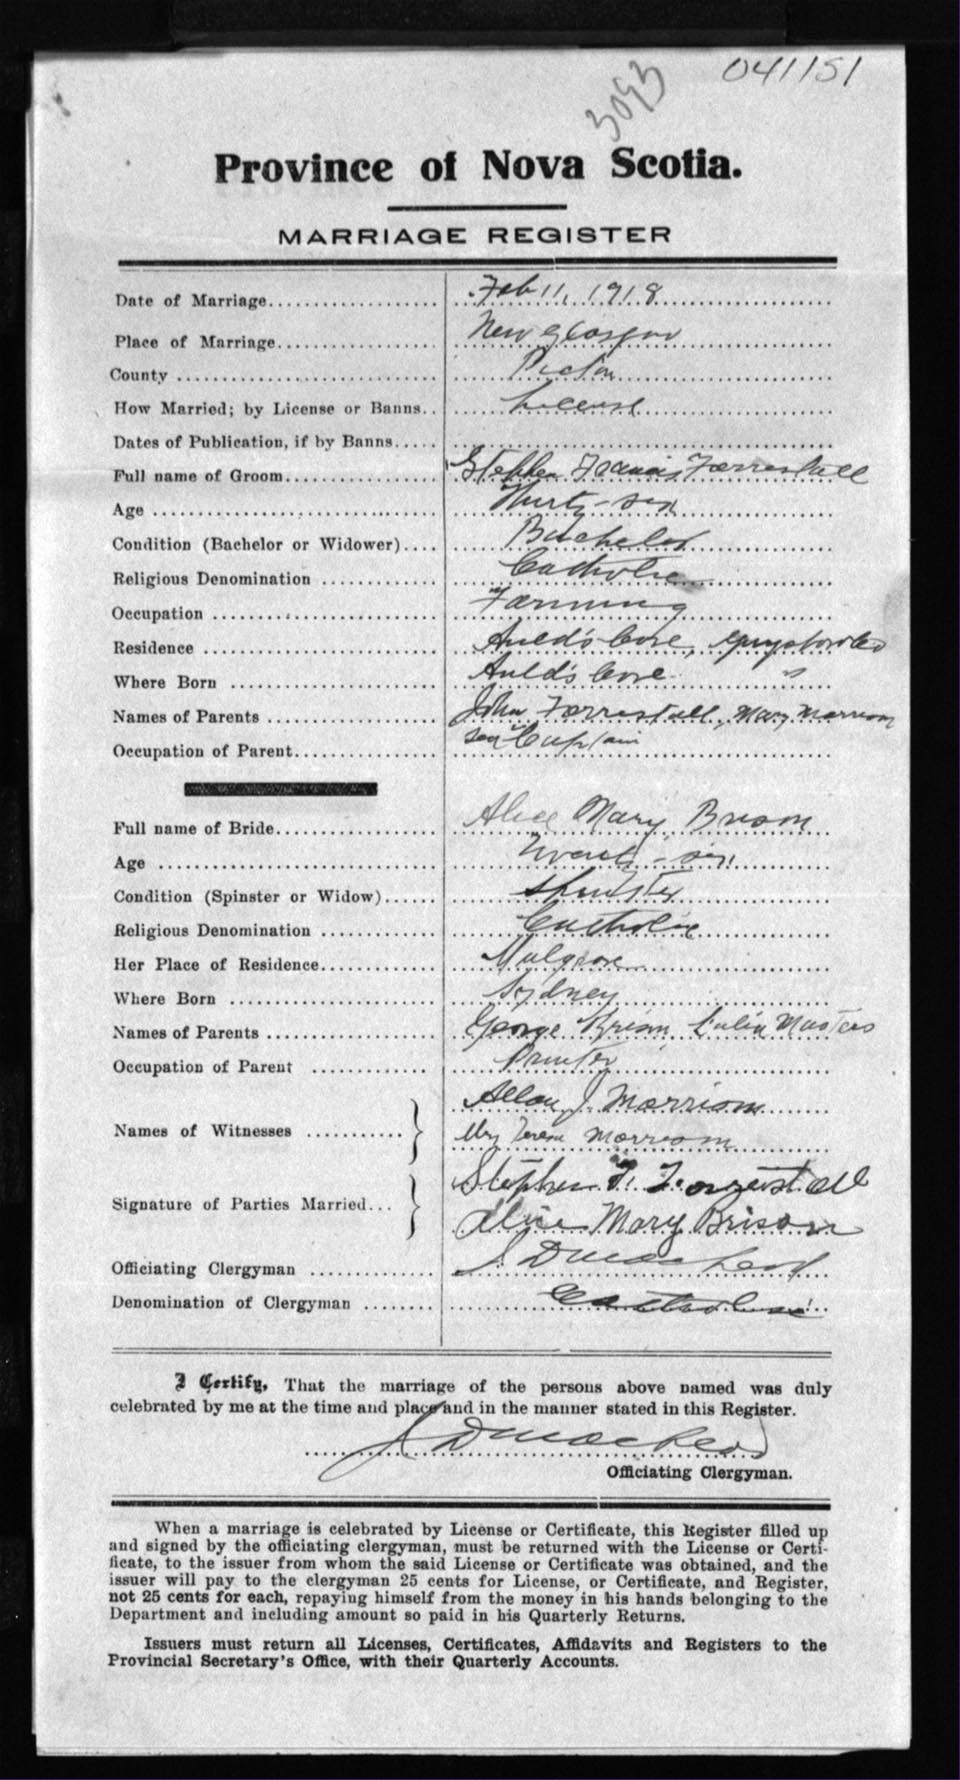 041151
3093
Province of Nova Scotia.
MARRIAGE REGISTER
Date of Marriage................... Feb 11, 1918
Place of Marriage.................. New Glasgow
County ............................ Pictou
How Married; by License or Banns.. License
Dates of Publication, if by Banns.....
Full name of Groom................. Stephen Francis Forrestall
Age ............................... Thirty-six
Condition (Bachelor or Widower).... Bachelor
Religious Denomination ............ Catholic
Occupation ........................ Farming
Residence ......................... Auld's Cove, Guysboro Co
Where Born ........................ Auld's Cove "
Names of Parents .................. John Forrestall, Mary Morrison
Occupation of Parent............... Sea Captain
Full name of Bride................. Alice Mary Brison
Age ............................... Twenty-six
Condition (Spinster or Widow)...... Spinster
Religious Denomination ............ Catholic
Her Place of Residence............. Mulgrave
Where Born ........................ Sydney
Names of Parents .................. George Brison, Masters
Occupation of Parent ..............
Names of Witnesses ........... } Allan J. Morrison
Mrs Morrison
Signature of Parties Married... } Stephen F. Forrestall
Alice Mary Brison
Officiating Clergyman ............. J D MacLeod
Denomination of Clergyman ........ Catholic
I Certify, That the marriage of the persons above named was duly
celebrated by me at the time and place and in the manner stated in this Register.
J D MacLeod
Officiating Clergyman.
When a marriage is celebrated by License or Certificate, this Register filled up
and signed by the officiating clergyman, must be returned with the License or Certi-
ficate, to the issuer from whom the said License or Certificate was obtained, and the
issuer will pay to the clergyman 25 cents for License, or Certificate, and Register,
not 25 cents for each, repaying himself from the money in his hands belonging to the
Department and including amount so paid in his Quarterly Returns.
Issuers must return all Licenses, Certificates, Affidavits and Registers to the
Provincial Secretary's Office, with their Quarterly Accounts.